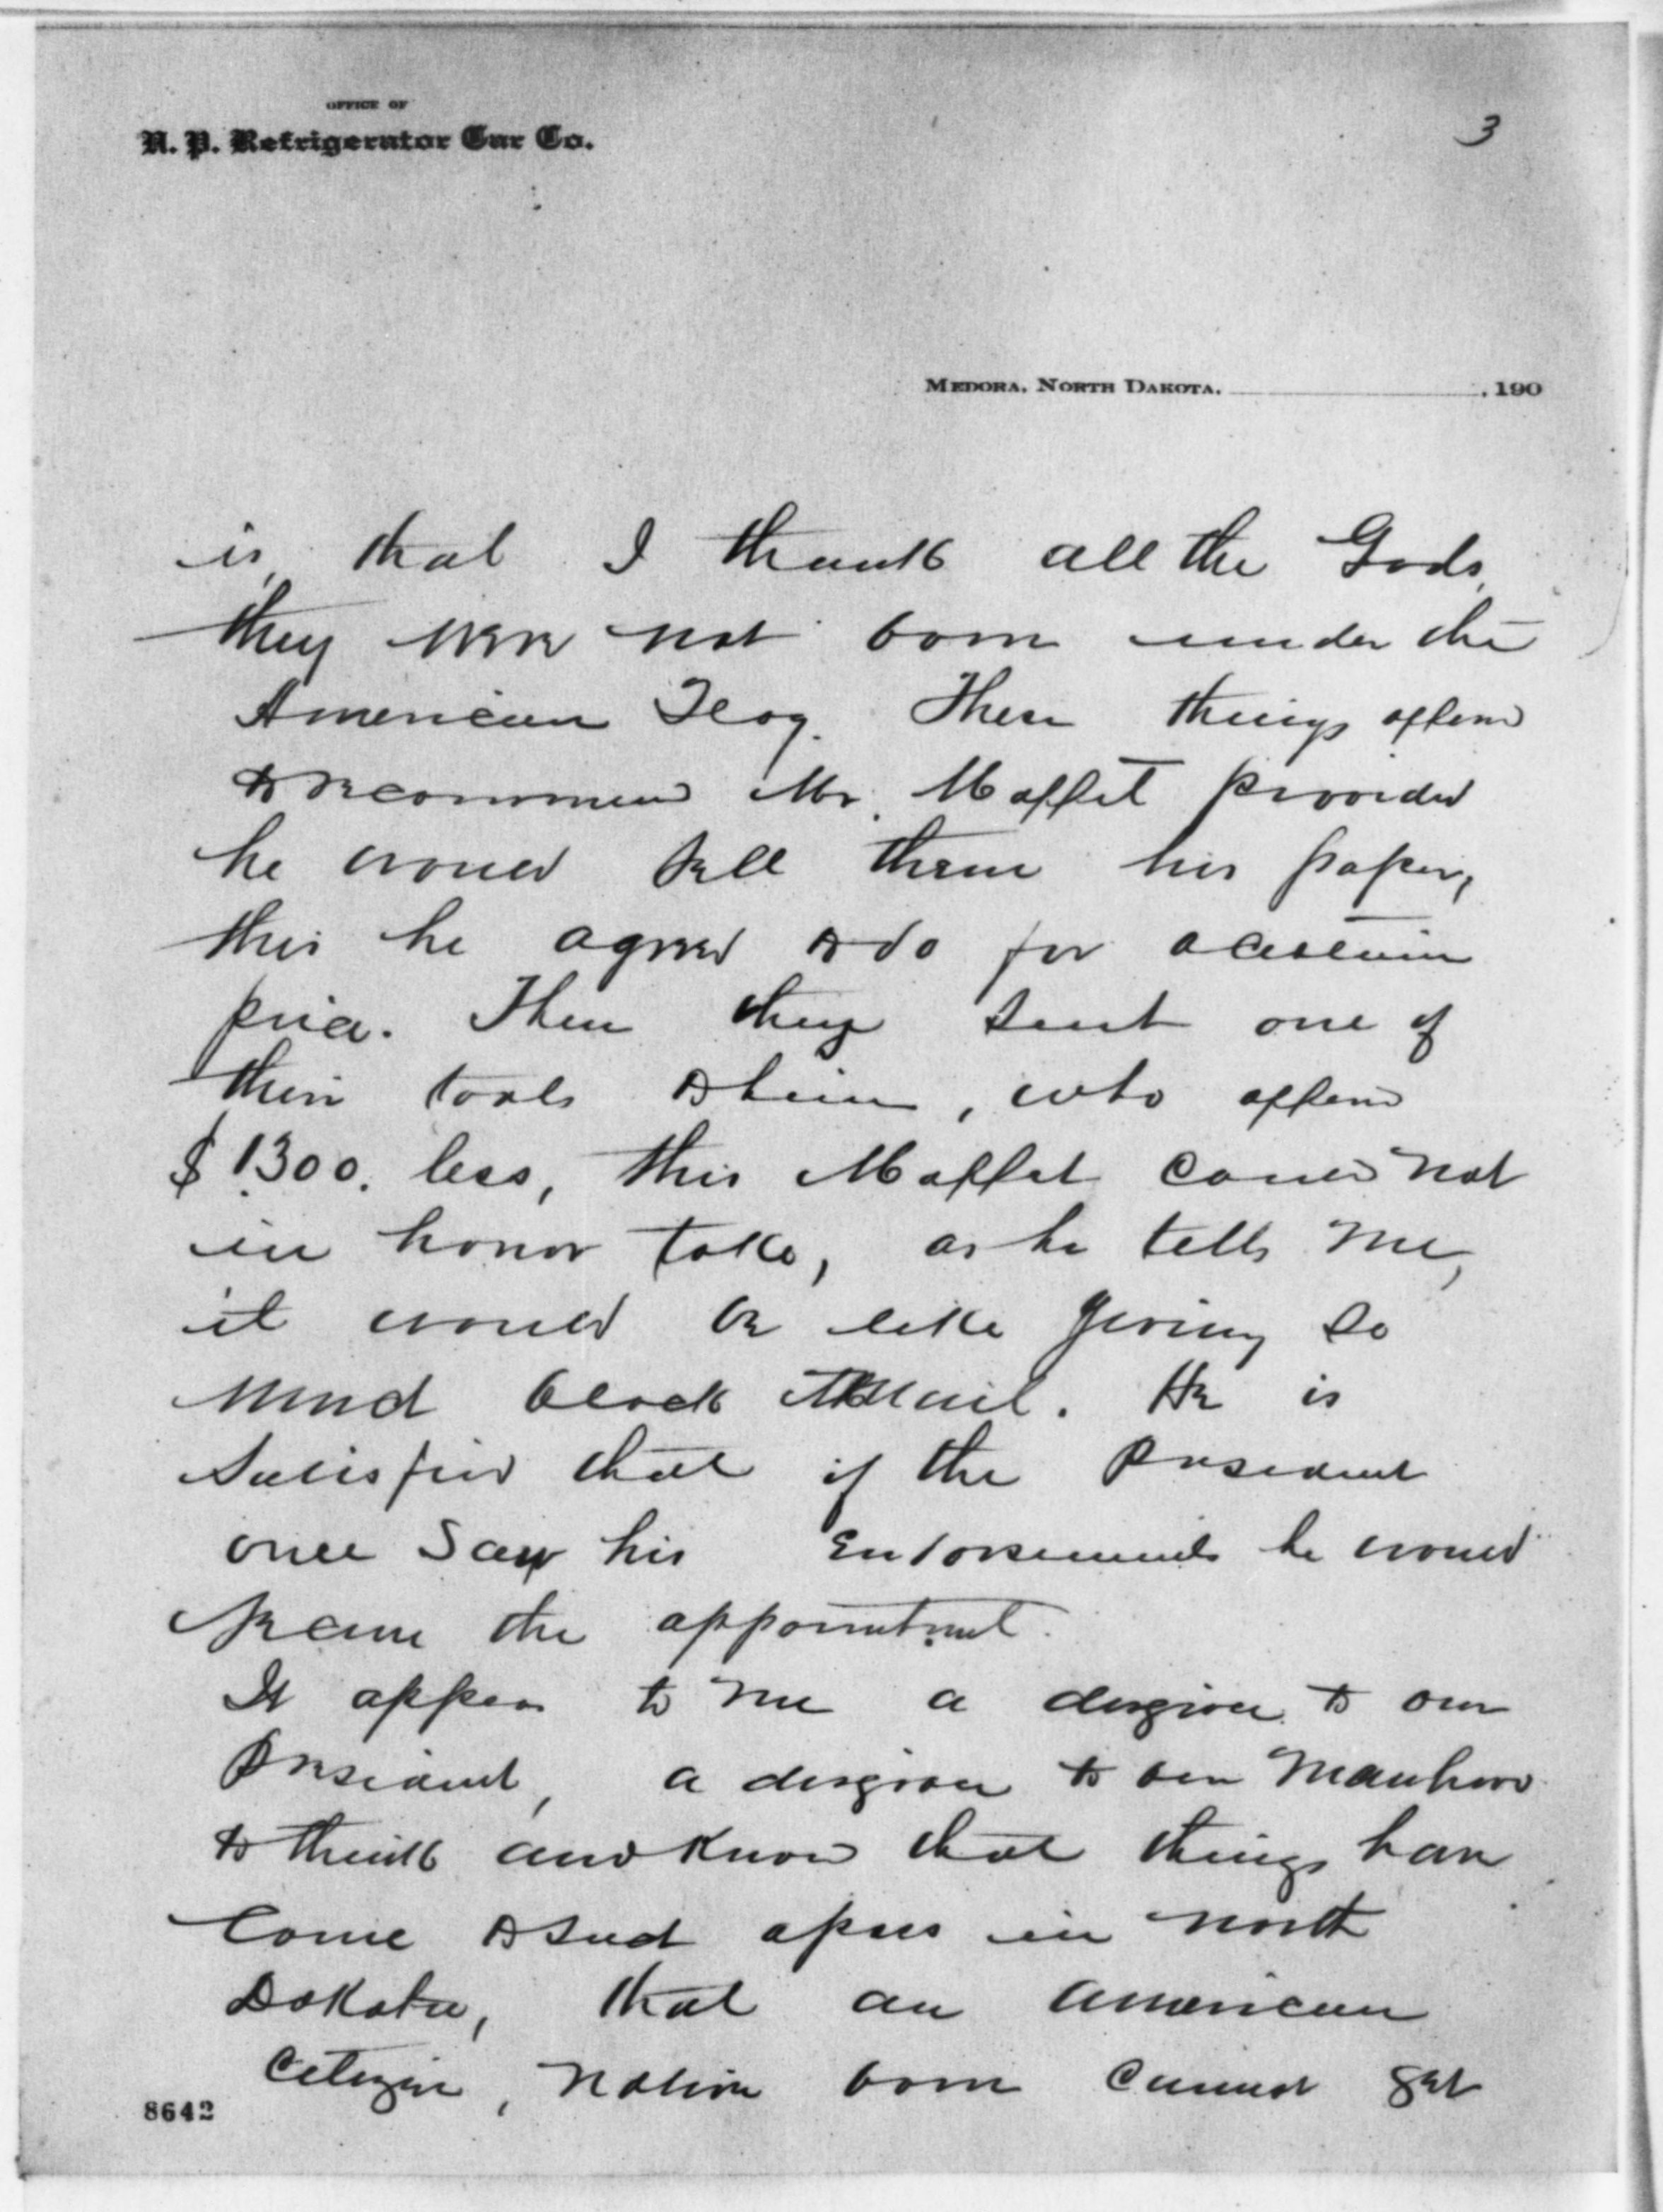 OFFICE OF
N. P. Refrigerator Car Co.
3
MEDORA, NORTH DAKOTA, , 190
is that I thank all the Gods
they were not born under the
American Flag. These things offered
to recommend Mr. Moffet provided
he would sell them his paper,
this he agreed to do for a certain
price. Then they sent one of
their tools to him, who offered
$1300. less, this Moffet could not
in honor take, as he tells me,
it would be like giving so
much black Mail. He is
satisfied that if the President
once saw his Endorsements he would
secure the appointment.
It appears to me a disgrace to our
President, a disgrace to our manhood
to think and know that things have
come to such a pass in North
Dakota, that an American
Citizen, native born cannot get
8642